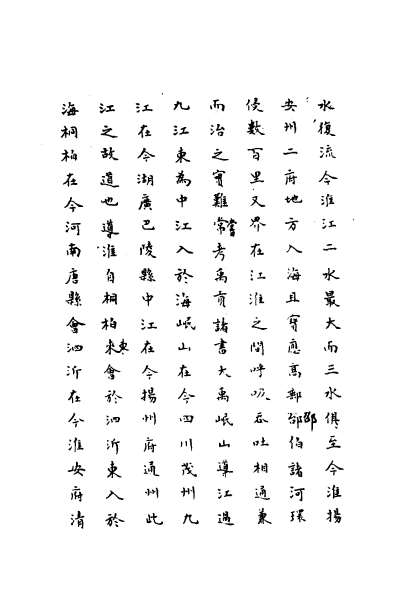 水復流今淮江二水最大而三水俱至今淮揚
安州二府地方入海且寶應高郵邵邵伯諸河環
侵數百里又界在江淮之間呼吸吞吐相通兼
而治之實難常嘗考禹貢諸書大禹岷山導江過
九江東為中江入於海岷山在今四川茂州九
江在今湖廣巴陵縣中江在今揚州府通州此
江之故道也導淮自桐柏来東會於泗沂東入於
海桐柏在今河南唐縣會泗沂在今淮安府清